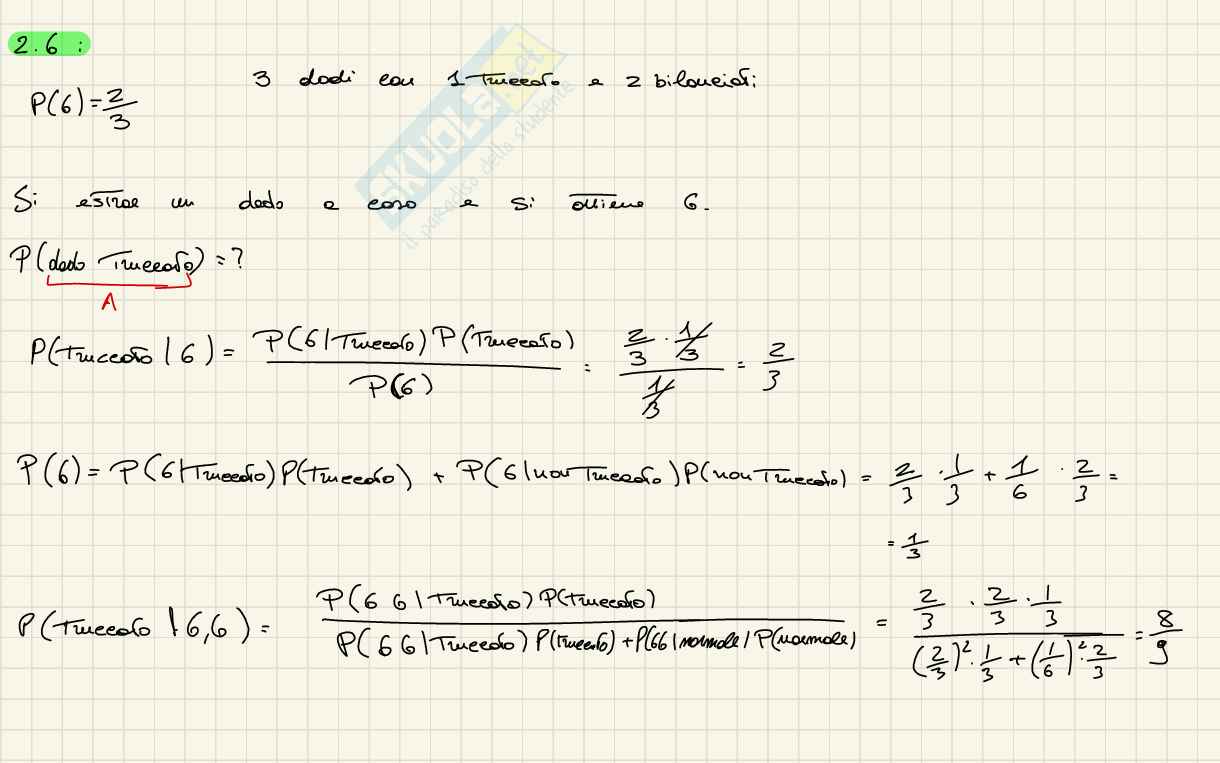 2.6 :
3 dadi con 1 truccato e 2 bilanciati
P(6) = 2/3
SKUOLA.net
il paradiso dello studente
Si estrae un dado a caso e si ottiene 6.
P(dado truccato) = ?
A
P(truccato | 6) = P(6|truccato) P(truccato) / P(6) = (2/3 · 1/3) / (1/3) = 2/3
P(6) = P(6|truccato) P(truccato) + P(6|non truccato) P(non truccato) = 2/3 · 1/3 + 1/6 · 2/3 =
= 1/3
P(truccato | 6,6) = P(6 6|truccato) P(truccato) / P(6 6|truccato) P(truccato) + P(66|normale) P(normale) = (2/3 · 2/3 · 1/3) / ((2/3)² · 1/3 + (1/6)² · 2/3) = 8/9